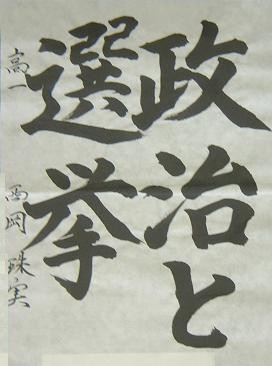 政治と
選挙
高一 西岡珠実